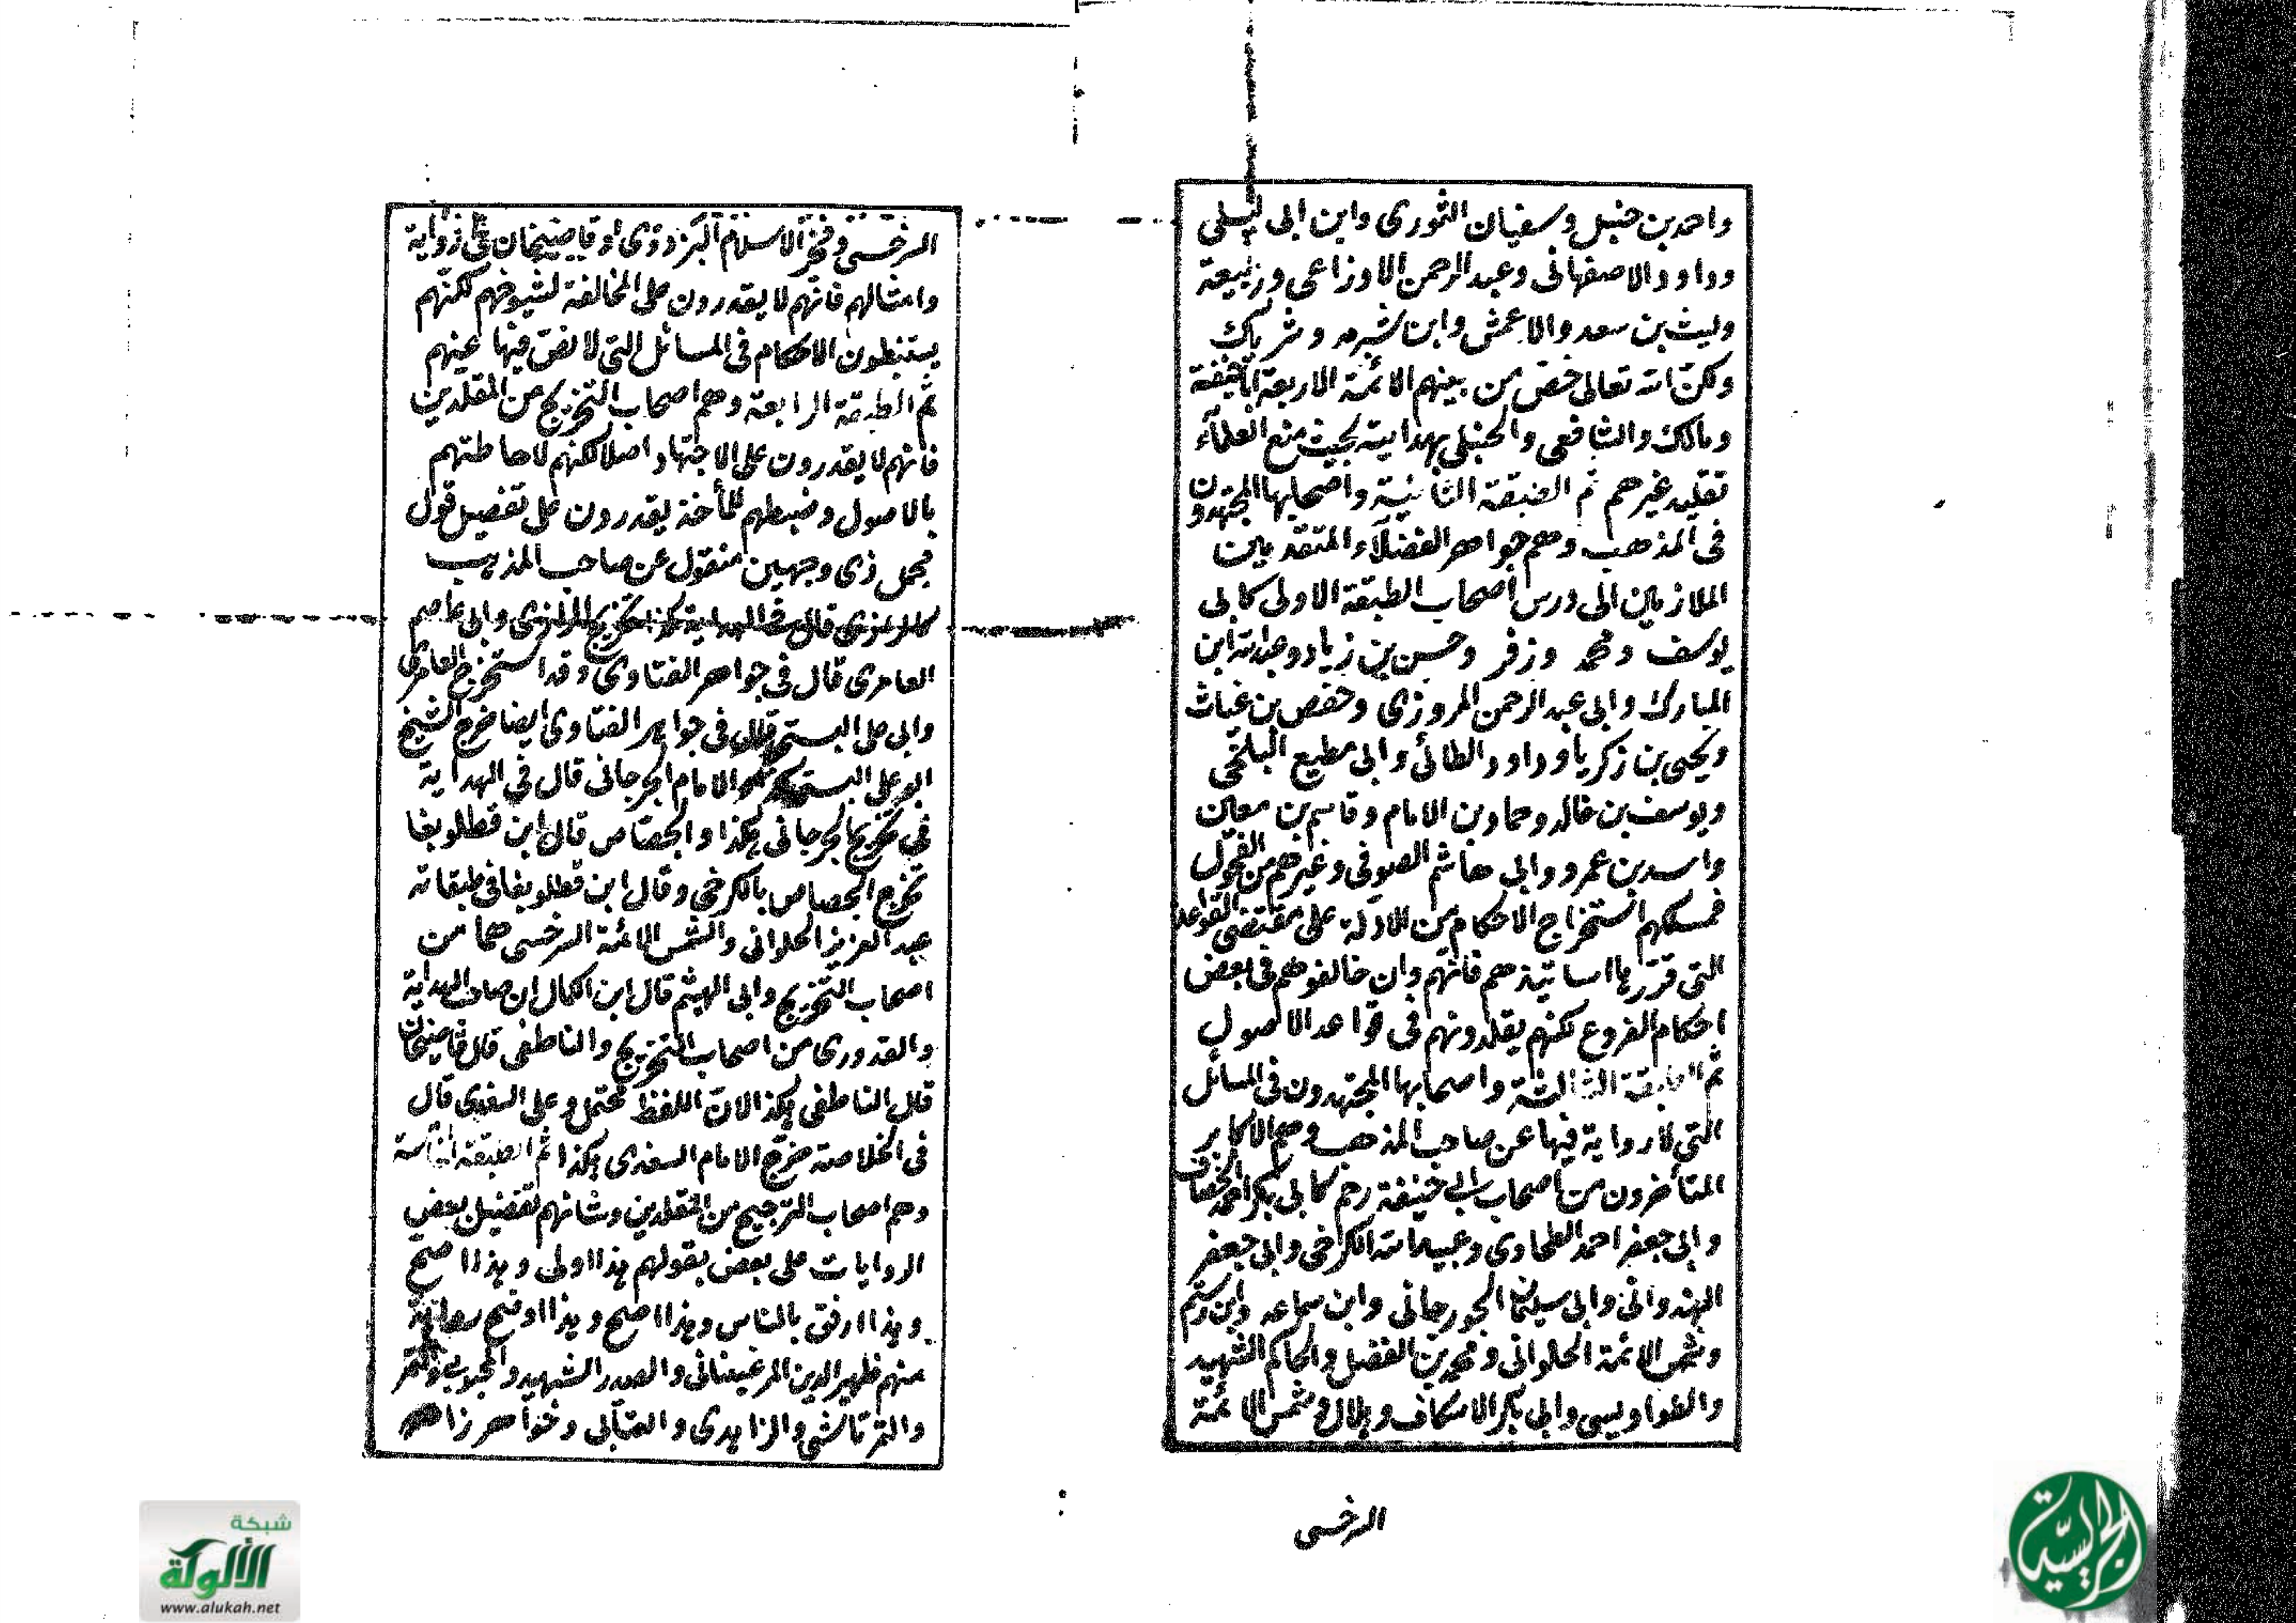 واحمد بن حنبل وسفيان الثورى وابن ابى ليلى
وداود الاصفهانى وعبد الرحمن الاوزاعى وربيعة
وليث بن سعد والاعمش وابن شبرمه وشريك
ولكن الله تعالى خص من بينهم الائمة الاربعة اباحنيفة
ومالك والشافعى والحنبلى بهدايته بحيث منع العلمآء
تقليد غيرهم ثم الطبقة الثانية واصحابها المجتهدون
فى المذهب وهم جواهر الفضلآء المتقدمين
الملازمين الى درس اصحاب الطبقة الاولى كابى
يوسف ومحمد وزفر وحسن بن زياد وعبدالله ابن
المبارك وابى عبد الرحمن المروزى وحفص بن غياث
ويحيى بن زكريا وداود الطائى وابى مطيع البلخى
ويوسف بن خالد وحماد بن الامام وقاسم بن معين
واسد بن عمرو وابى هاشم الصوفى وغيرهم من الفحول
فمسلكهم استخراج الاحكام من الادلة على مقتضى القواعد
التى قررها اساتيذهم فانهم وان خالفوهم فى بعض
احكام الفروع لكنهم يقلدونهم فى قواعد الاصول
ثم الطبقة الثالثة واصحابها المجتهدون فى المسائل
التى لا رواية فيها عن صاحب المذهب وهم الاكابر
المتأخرون من اصحاب ابى حنيفة رحم كابى بكر احمد الخصاف
وابى جعفر احمد الطحاوى وعبيدالله الكرخى وابى جعفر
الهندوانى وابى سليمان الجورجانى وابن سماعه وابن رستم
وشمس الائمة الحلوانى ومحمد بن الفضل والحاكم الشهيد
والطواويسى وابى بكر الاسكاف وهلال وشمس الائمة
السرخسى
السرخسى وفخر الاسلام البزدوى او قاضيخان على رواية
وامثالهم فانهم لا يقدرون على المخالفة لشيوخهم لكنهم
يستنبطون الاحكام فى المسائل التى لا نص فيها عنهم
ثم الطبقة الرابعة وهم اصحاب التخريج من المقلدين
فانهم لا يقدرون على الاجتهاد اصلا لكنهم لاحاطتهم
بالاصول وضبطهم للمأخذ يقدرون على تفصيل قول
مجمل ذى وجهين منقول عن صاحب المذهب
كالرازى قال فى الهداية كذا تخريج الرازى وابى عاصم
العامرى قال فى جواهر الفتاوى وقد استخرج العامرى
وابى على البستى قال فى جواهر الفتاوى ايضا خرج الشيخ
ابو على البستى والامام الجرجانى قال فى الهداية
فى تخريج الجرجانى هكذا والجصاص قال ابن قطلوبغا
تخرج الجصاص بالكرخى وقال ابن قطلوبغا فى طبقاته
عبد العزيز الحلوانى والشمس الائمة السرخسى هما من
اصحاب التخريج وابى الهيثم قال ابن الكمال ان صاحب الهداية
والقدورى من اصحاب التخريج والناطفى قال قاضيخان
قال الناطفى هكذا لان اللفظ محتمل وعلى السغدى قال
فى الخلاصة خرج الامام السغدى هكذا ثم الطبقة الخامسة
وهم اصحاب الترجيح من المقلدين وشانهم تفضيل بعض
الروايات على بعض بقولهم هذا اولى وهذا اصح
وهذا ارفق بالناس وهذا اصلح وهذا اوضح رواية
منهم ظهير الدين المرغينانى والصدر الشهيد والمحبوبى
والتمرتاشى والزاهدى والعتابى وخواهر زاده
شبكة
الألوكة
www.alukah.net